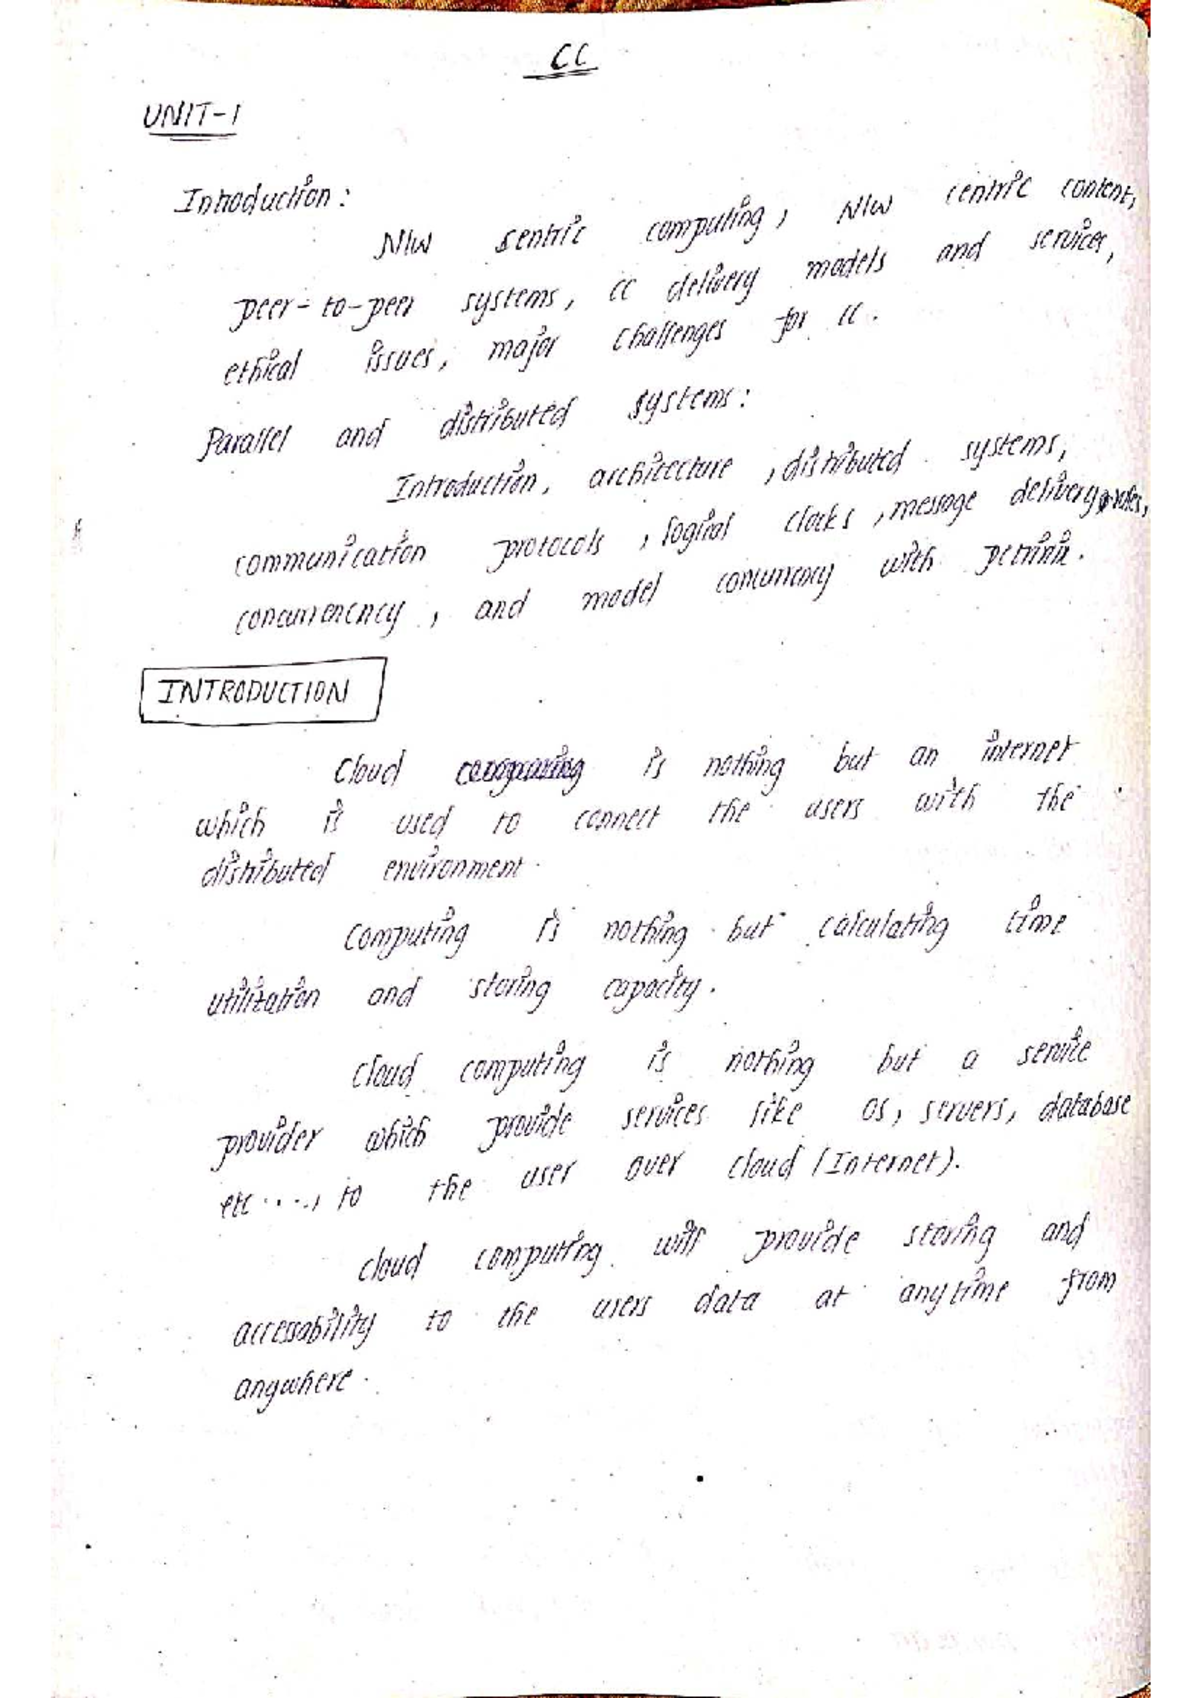 CC
UNIT-1
Introduction:
N/w sentric computing, N/w centric content,
peer-to-peer systems, CC delivery models and services,
ethical issues, major challenges for CC.
Parallel and distributed systems:
Introduction, architecture, distributed systems,
communication protocols, logical clocks, message delivery rules,
concurrencncy, and model concurrency with petrinix.
INTRODUCTION
Cloud is nothing but an internet
which is used to connect the users with the
distributed environment.
Computing is nothing but calculating time
utilization and storing capacity.
Cloud computing is nothing but a service
provider which provide services like OS, servers, database
etc...., to the user over cloud (Internet).
Cloud computing will provide storing and
accessability to the users data at anytime from
anywhere.